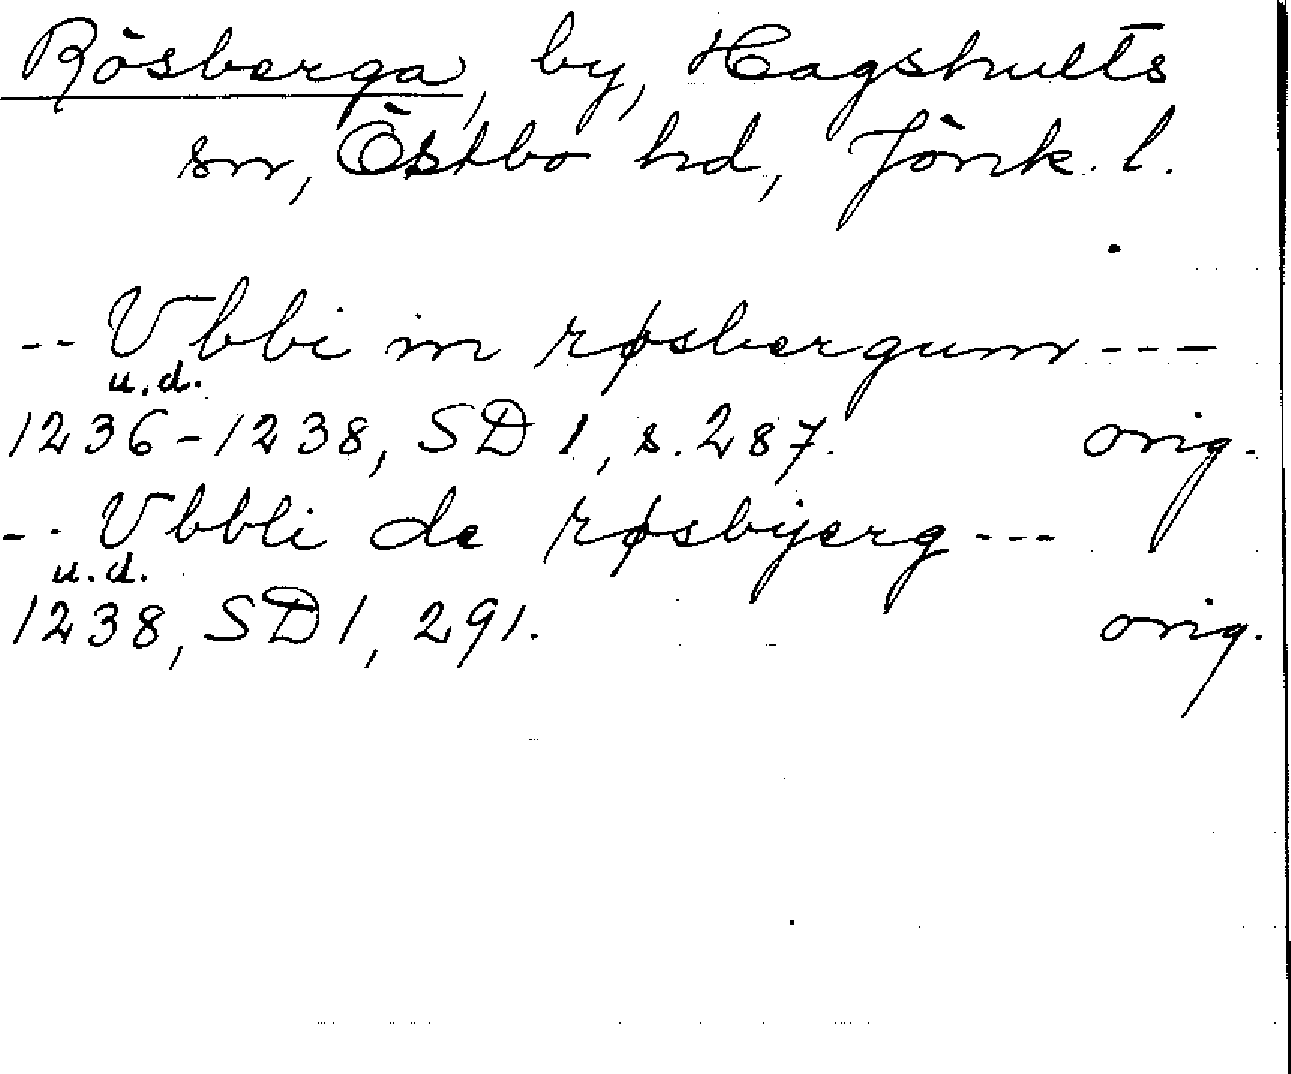 Rösberga, by, Hagshults
sn, Östbo hd, Jönk. l.
-- Vbbi in røsbergum ---
u.d.
1236-1238, SD 1, s. 287. orig.
-- Vbbli de røsbyerg ---
u.d.
1238, SD 1, 291. orig.